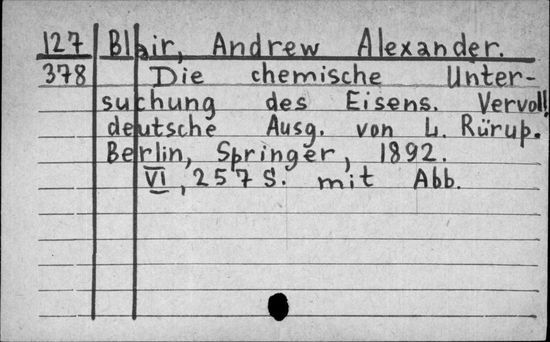 127 Blair, Andrew Alexander.
378 Die chemische Unter-
suchung des Eisens. Vervoll
deutsche Ausg. von L. Rürup.
Berlin, Springer, 1892.
VI, 257 S. mit Abb.